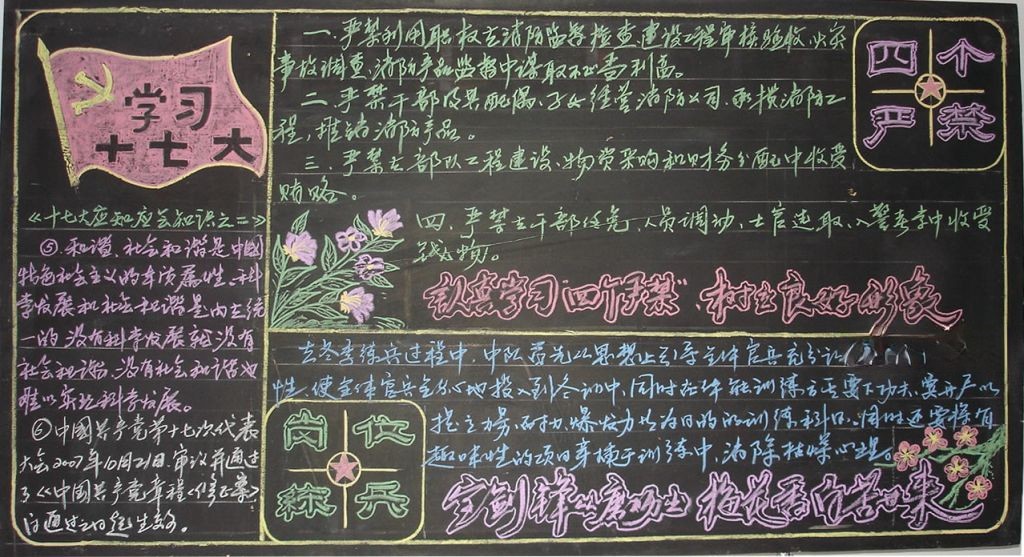 学习
十七大
《十七大应知应会知识之二》
⑤和谐、社会和谐是中国
特色社会主义的本质属性、科
学发展和社会和谐是内在统
一的没有科学发展就没有
社会和谐、没有社会和谐也
难以实现科学发展。
⑥中國共产党第十七次代表
大会2007年10月21日审议并通过
了《中国共产党章程《修正案》
自通过之日起生效。
一、严禁利用职权在消防监督检查、建设工程审核验收、火灾
事故调查、消防产品监督中谋取不正当利益。
二、严禁干部及其配偶、子女经营消防公司、承揽消防工
程，推销消防产品。
三、严禁在部队工程建设、物资采购和财务分配中收受
贿赂。
四、严禁在干部任免、人员调动、士官选取、入警考学中收受
钱物。
四个
严禁
认真学习"四个严禁"、树立良好形象
在冬季练兵过程中，中队首先从思想上引导全体官兵充分认
性，使全体官兵全身心地投入到冬训中，同时在体能训练方面要下功夫，要开展以
力量、耐力、爆发力为目的的训练科目，同时还要将有
趣味性的项目穿插于训练中，消除枯燥心理。
岗位
练兵
宝剑锋从磨砺出 梅花香自苦寒来